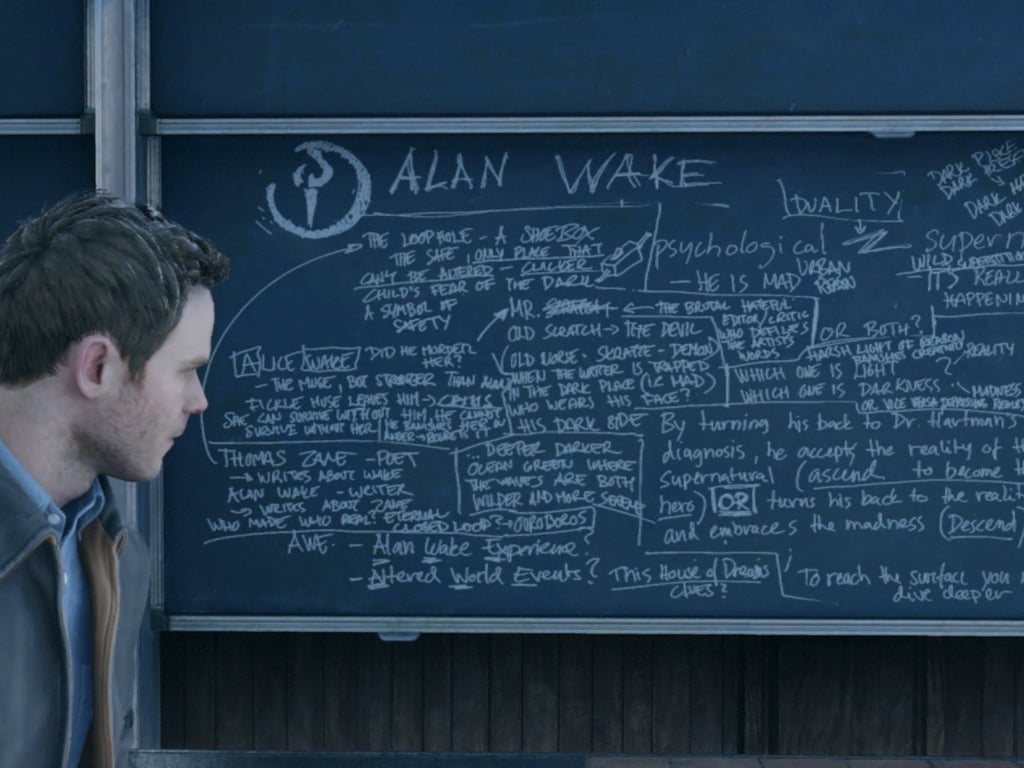 ALAN WAKE
THE LOOPHOLE - A SHOEBOX
THE SAFE, ONLY PLACE THAT
CAN'T BE ALTERED - CLICKER
CHILD'S FEAR OF THE DARK
A SYMBOL OF
SAFETY
ALICE WAKE - DID HE MURDER
HER?
- THE MUSE, BUT STRONGER THAN ALAN
FICKLE MUSE LEAVES HIM → CRISIS
SHE CAN SURVIVE WITHOUT HIM, HE CANNOT
SURVIVE WITHOUT HER
HE BANISHES HER IN
THOMAS ZANE - POET
→ WRITES ABOUT WAKE
ALAN WAKE - WRITER
→ WRITES ABOUT ZANE
WHO MADE WHO REAL? ETERNAL
CLOSED LOOP? → OUROBOROS
AWE - Alan Wake Experience?
- Altered World Events?
MR. SCRATCH ← THE BRUTAL HATEFUL
EDITOR/CRITIC
WHO DEFILES
THE ARTIST'S
WORDS
OLD SCRATCH → THE DEVIL
OLD NORSE - SKRATTE - DEMON
WHEN THE WRITER IS TRAPPED
IN THE DARK PLACE (IE MAD)
WHO WEARS HIS FACE?
HIS DARK SIDE
... DEEPER DARKER
OCEAN GREEN WHERE
THE WAVES ARE BOTH
WILDER AND MORE SERENE
DUALITY
psychological
- HE IS MAD
URBAN
REASON
SUPERN
WILD SUPERSTITION
IT'S REALLY
HAPPENING
DARK PLACE
DARK
DARK
DARK
OR BOTH?
HARSH LIGHT OF REASON
BANISHES CREATION
REALITY
WHICH ONE IS LIGHT ?
WHICH ONE IS DARKNESS
MADNESS
OR VICE VERSA
By turning his back to Dr. Hartman's
diagnosis, he accepts the reality of the
supernatural (ascend to become the
hero) OR turns his back to the reality
and embraces the madness (Descend
This House of Dreams
CLUES?
To reach the surface you
dive deeper